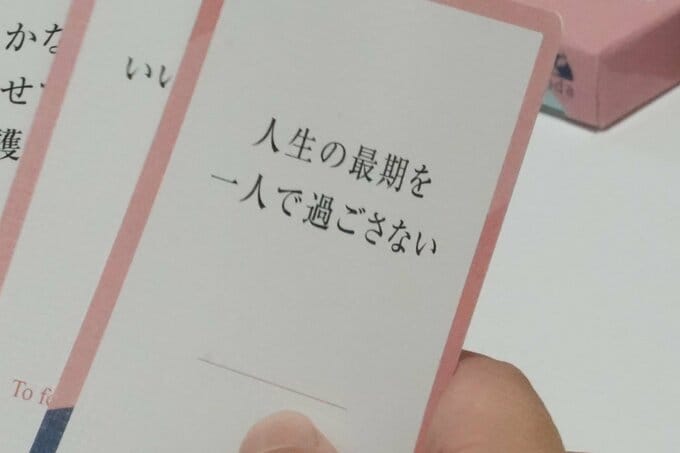 人生の最期を
一人で過ごさない
かな
せ
護
いい
To fe
da